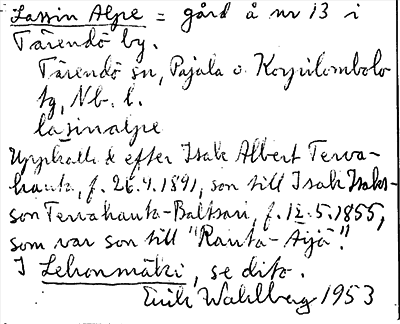 Lassin Alpe = gård å nr 13 i
Tärendö by.
Tärendö sn, Pajala o. Korpilombolo
tg, Nb. l.
lasinalpe
Uppkallad efter Isak Albert Terva-
hauta, f. 26.4.1891, son till Isak Isaks-
son Tervahauta-Baltsari, f. 12.5.1855,
som var son till "Ranta-Äijä".
I Lehonmäki, se dito.
Erik Wahlberg 1953